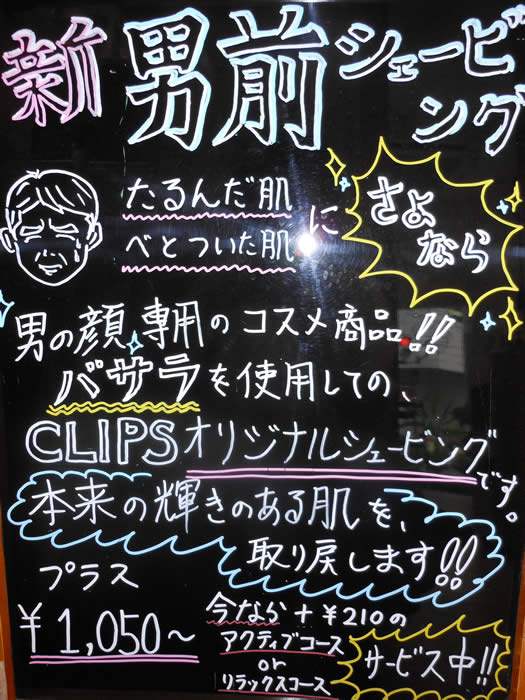 新男前シェービング
たるんだ肌
べとついた肌に
さよなら
男の顔専用のコスメ商品!!
バサラを使用しての、
CLIPSオリジナルシェービングです。
本来の輝きのある肌を、
取り戻します!!
プラス
¥1,050~
今なら+¥210の
アクティブコース
or
リラックスコース
サービス中!!